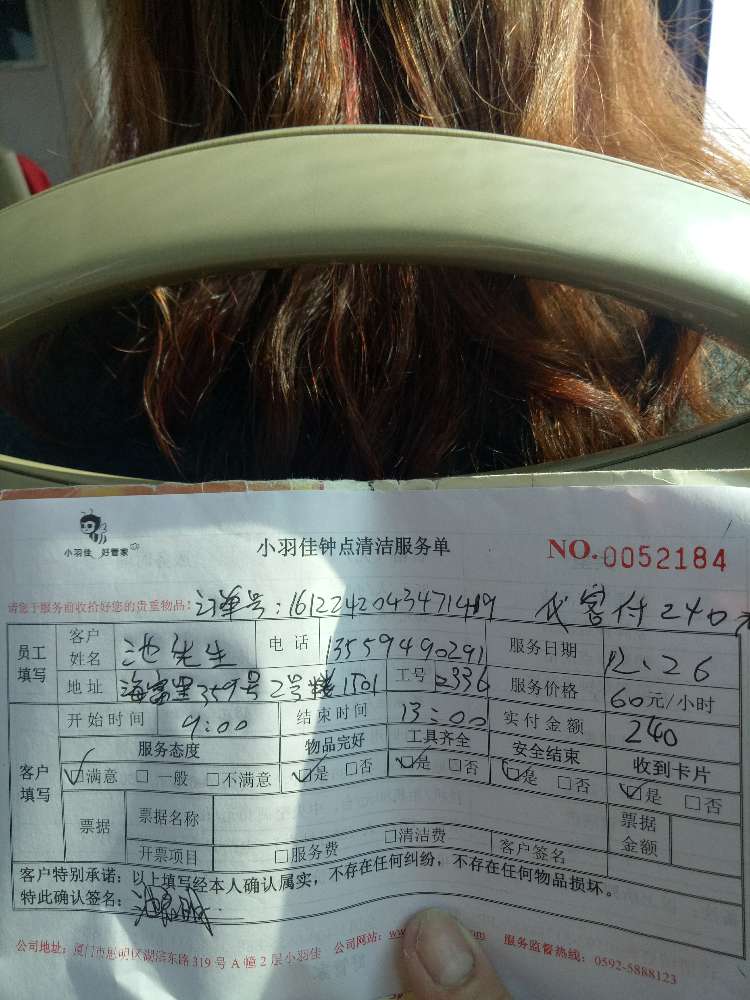 小羽佳 好管家
小羽佳钟点清洁服务单
NO.0052184
请您于服务前收拾好您的贵重物品!
订单号:16122420434714 代客付240元
员工填写 客户姓名 池先生 电话 13559490291 服务日期 12.26
地址 海富里359号2号楼1501 工号 2336 服务价格 60元/小时
客户填写 开始时间 9:00 结束时间 13:00 实付金额 240
服务态度 物品完好 工具齐全 安全结束 收到卡片
☑满意 □一般 □不满意 ☑是 □否 ☑是 □否 ☑是 □否 ☑是 □否
票据 票据名称 票据金额
开票项目 □服务费 □清洁费 客户签名
客户特别承诺:以上填写经本人确认属实,不存在任何纠纷,不存在任何物品损坏。
特此确认签名:
公司地址:厦门市思明区湖滨东路319号A幢2层小羽佳 公司网站:ww om 服务监督热线:0592-5888123